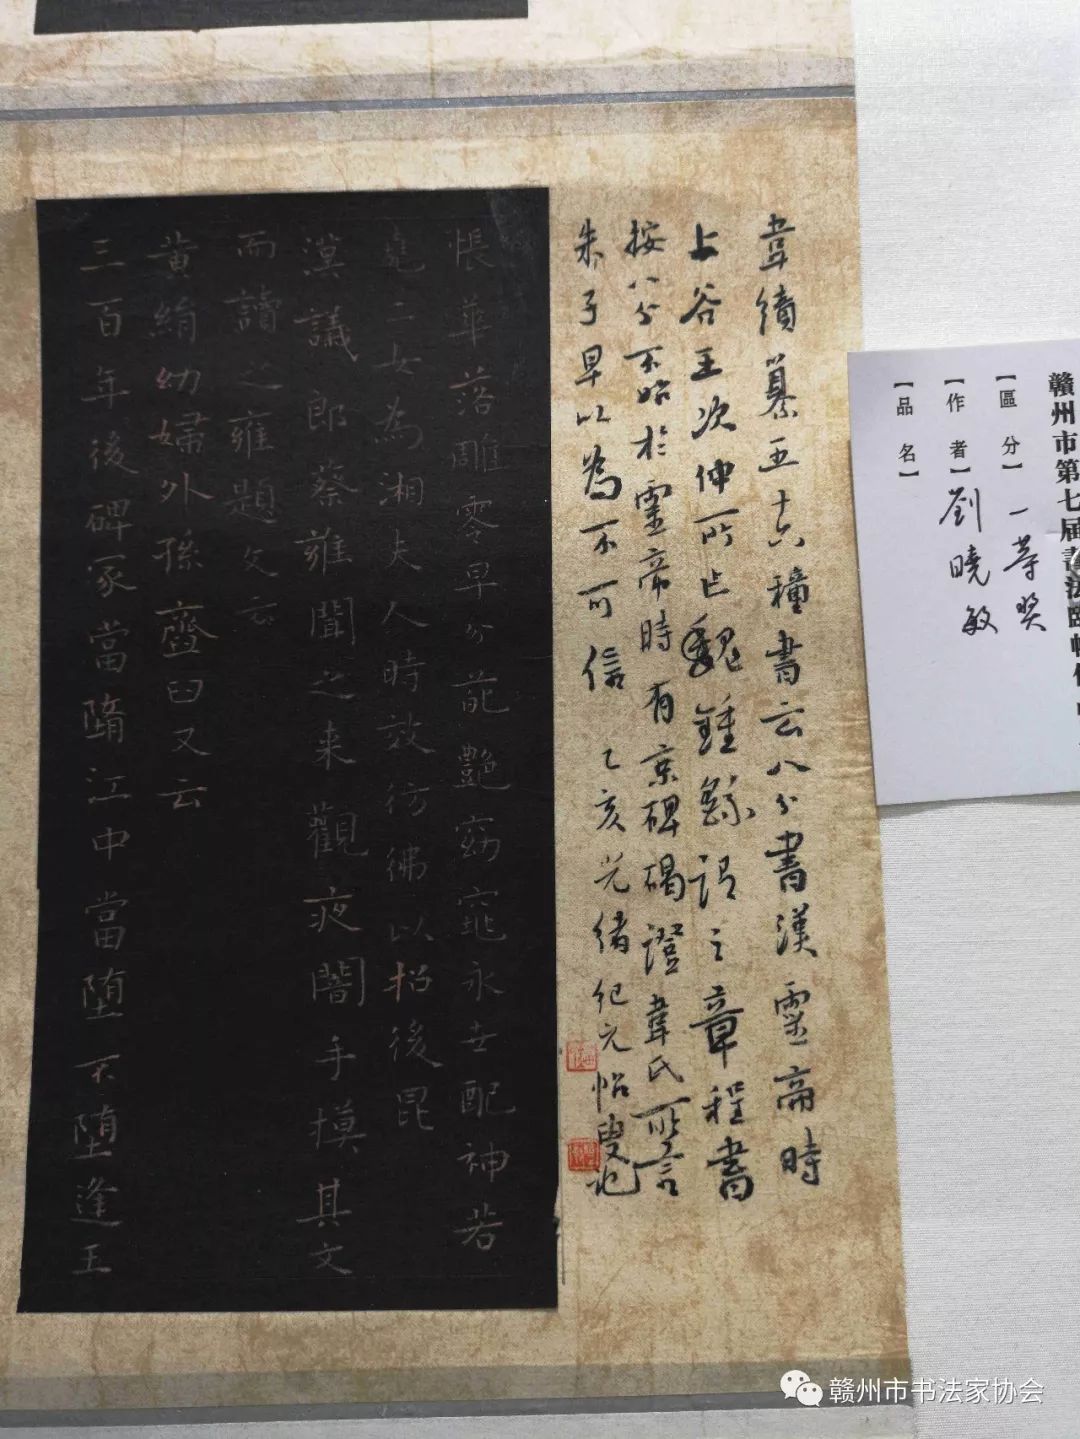 韋續纂五十六種書云八分書漢靈帝時
上谷王次仲所作魏鍾繇謂之章程書
按八分不始於靈帝時有京碑碣證韋氏所言
朱子早以為不可信 乙亥光緒紀元怡叟記
悵華落雕零早分葩艷窈窕永世配神若
堯二女為湘夫人時效彷彿以招後昆
漢議郎蔡雍聞之来觀夜闇手摸其文
而讀之雍題文云
黃絹幼婦外孫齏臼又云
三百年後碑冢當隨江中當堕不堕逢王
贛州市第七届書法臨帖作
【區分】一等奖
【作者】劉曉敏
【品名】
赣州市书法家协会